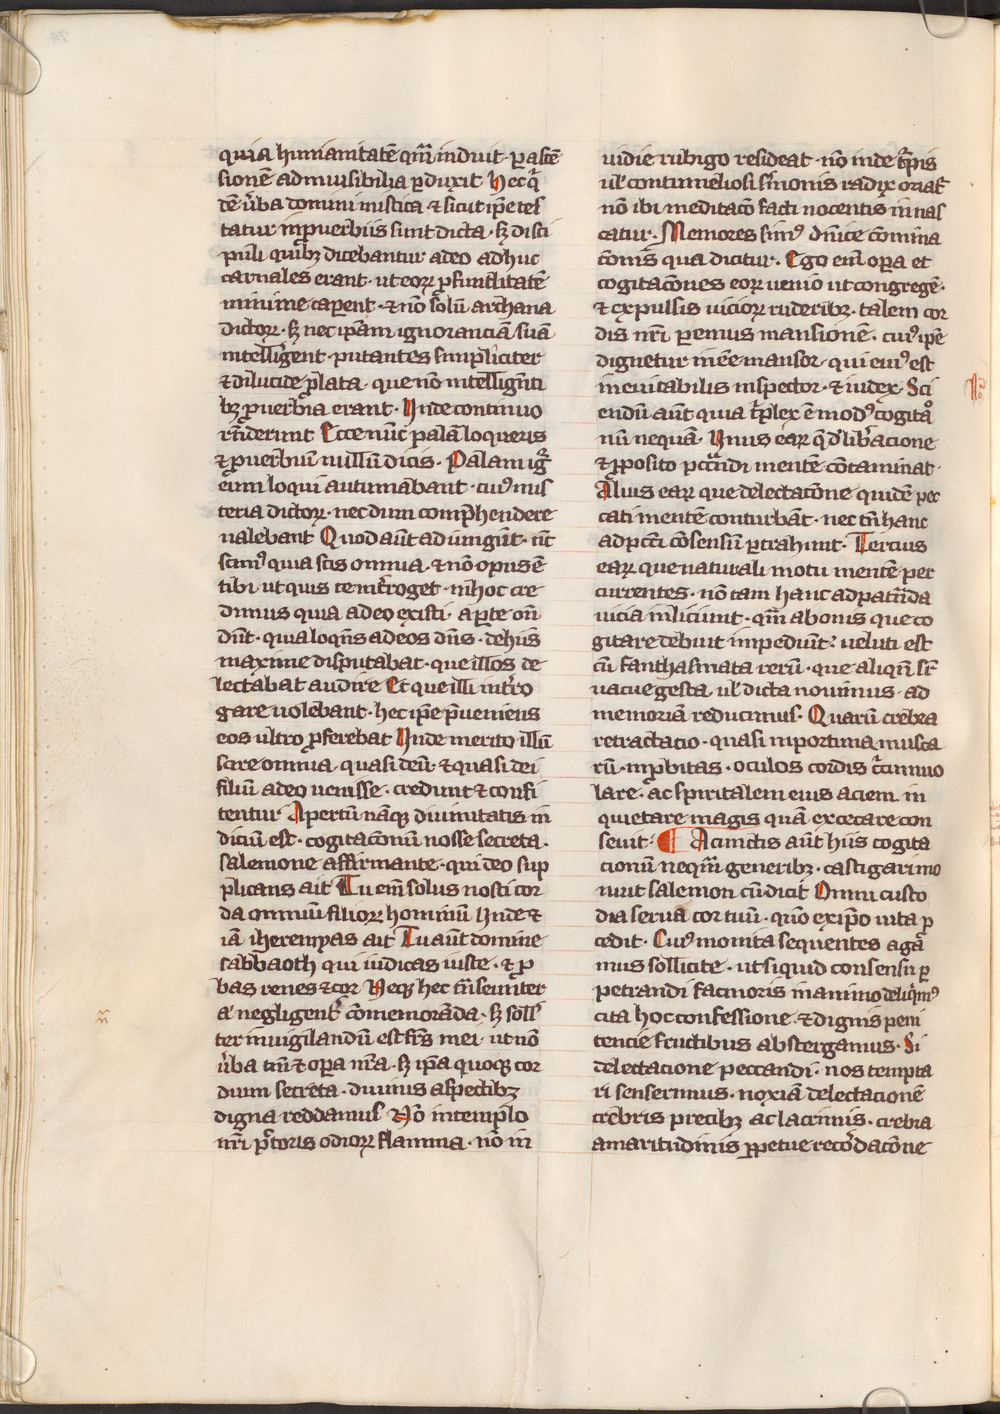 quia humanitatē quā induit · p ascē
sionē ad inuisibilia pduxit Hec qͥ
dē ūba domini mistica ⁊ sicut ip̄e tes
tatur in puerbiis sunt dicta · sꝫ disci
puli quibꝫ dicebantur adeo adhuc
carnales erant · ut eoꝝ pfunditatē
minime caperent · ⁊ nō solū archana
dictoꝝ · sꝫ nec ip̄am ignoranciā suā
intelligerent · putantes simpliciter
⁊ dilucide plata · que nō intelligenti
bꝫ puerbia erant · Unde continuo
rn̄derunt Ecce nūc palā loqueris
⁊ puerbiū nullū dicis · Palam igͥ
eum loqui autumabant · cuiꝰ mis
teria dictoꝝ · nec dum comp̄hendere
ualebant Quod aūt adiungūt · nūc
scimꝰ quia scis omnia · ⁊ nō opus ē
tibi · ut quis te int̄roget · in hoc cre
dimus quia a deo existi · apte on̄
dūt · quia loquēs ad eos dn̄s · de hiis
maxime disputabat · que illos de
lectabat audire Et que illi int̄ro
gare uolebant · hec ip̄e p̄ueniens
eos ultro pferebat Unde merito illū
scire omnia · quasi deū · ⁊ quasi dei
filiū a deo uenisse · credunt ⁊ confi
tentur Apertū nāqꝫ diuinitatis in
diciū est · cogitacōnum nosse secreta ·
salemone affirmante · qui deo sup
plicans ait Tu em̄ solus nosti cor
da omniū filioꝝ hominū Unde ⁊
iā iheremyas ait Tu aūt domine
sabbaoth qui iudicas iuste · ⁊ p
bas renes ⁊ cor Neqꝫ hec tn̄ seuniter
a negligent᷒ cōmemorāda · sꝫ soll᷒
ter inuigilandū est frs̄ mei · ut nō
ūba tm̄ ⁊ opa nr̄a · sꝫ ip̄a quoqꝫ cor
dium secreta · diuinis aspectibꝫ
digna reddamus Nō in templo
nr̄i p̄toris odioꝝ flamma · nō in
uidie rubigo resideat · nō inde tp̄is
ul̄ contumeliosi s̄monis radix oriat᷒
nō ibi meditacō facti nocentis in nas
catur · Memores simꝰ dn̄ice cōmina
cōnis qua dicitur · Ego em̄ opa et
cogitacōnes eoꝝ uenio ut congregē ·
⁊ expulsis uicioꝝ ruderibꝫ · talem cor
dis nr̄i pemus mansionē · cuiꝰ ip̄e
dignetur in eē mansor · qui eiuꝰ est
ineuitabilis inspector · ⁊ iudex · Sci
endū aūt quia tͥplex ē modꝰ cogitaͦ
nū nequā · Unus eaꝝ q̄ dͥlib̄acione
⁊ pposito pccandi mentē cōtaminat ·
Alius eaꝝ que delectacōne quidē pec
cati mentē conturbāt · nec tn̄ hanc
ad pcc̄i cōsensū ptrahunt · Tercius
eaꝝ que naturali motu mentē per
currentes · nō tam hanc ad patn̄da
uicia inliciunt · qm̄ a bonis que co
gitare debuit impediūt · ueluti est
cū fanthasmata rerū · que aliqn̄ st͛
uacue gesta · ul̄ dicta nouimus · ad
memoriā reducimus · Quarū crebra
retractacio · quasi inportuna musca
rū · inpbitas · oculos cordis cͥcumuo
lare · ac spiritalem eius aciem in
quietare magis quā excecare con
seuit · ¶ A cunctis aūt hiis cogita
cionū neqͣm generibꝫ · castigari mo
nuit salemon cū dicit Omni custo
dia serua cor tuū · qm̄ ex ip̄o uita p
cedit · Cuiꝰ monita sequentes agā
mus sollicite · ut siquid consensu p
petrandi facinoris in animo deliqͥmꝰ
cita hoc confessione · ⁊ dignis peni
tencie fructibus abstergamus · Si
delectacione peccandi · nos tempta
ri senserimus · noxiā delectacionē
crebris precibꝫ ac lacrimis · crebra
amaritudinis ppetue recōdacōne